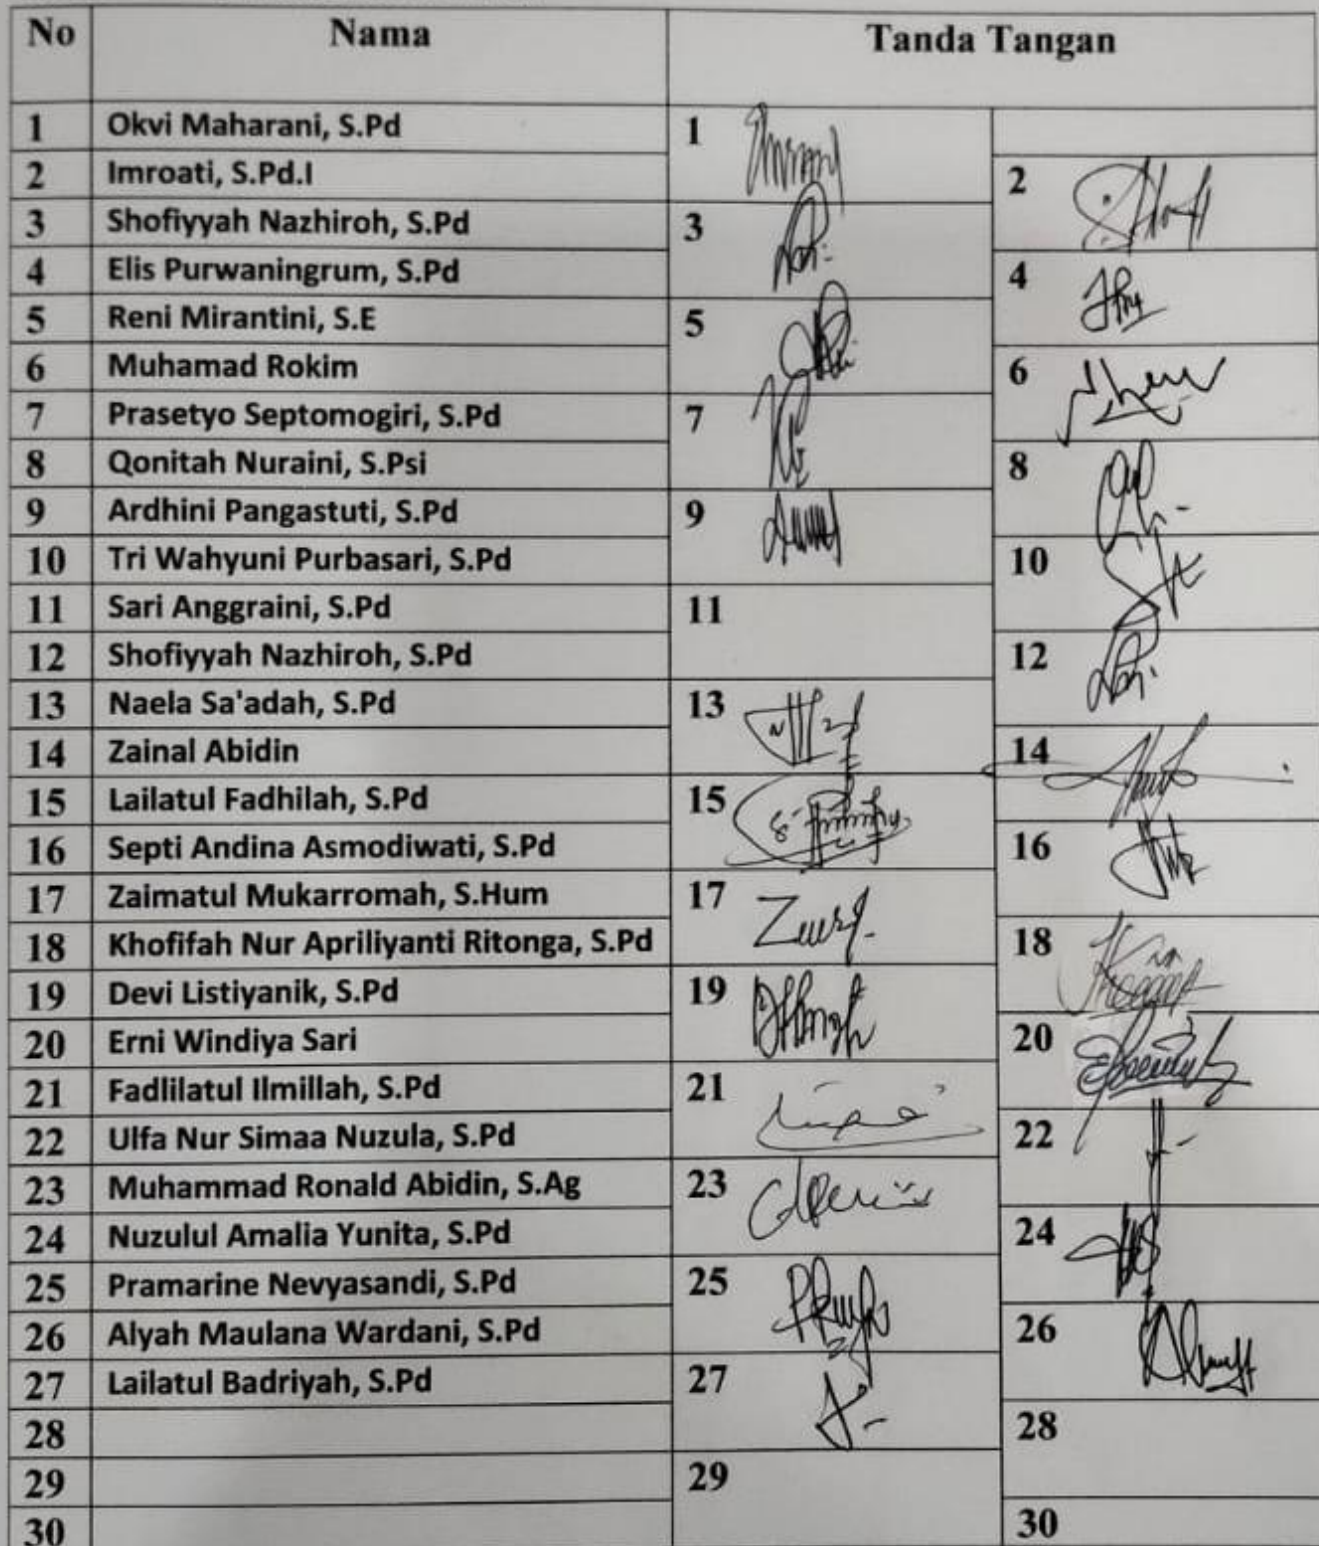 No Nama Tanda Tangan
1 Okvi Maharani, S.Pd 1
2 Imroati, S.Pd.I 2
3 Shofiyyah Nazhiroh, S.Pd 3
4 Elis Purwaningrum, S.Pd 4
5 Reni Mirantini, S.E 5
6 Muhamad Rokim 6
7 Prasetyo Septomogiri, S.Pd 7
8 Qonitah Nuraini, S.Psi 8
9 Ardhini Pangastuti, S.Pd 9
10 Tri Wahyuni Purbasari, S.Pd 10
11 Sari Anggraini, S.Pd 11
12 Shofiyyah Nazhiroh, S.Pd 12
13 Naela Sa'adah, S.Pd 13
14 Zainal Abidin 14
15 Lailatul Fadhilah, S.Pd 15
16 Septi Andina Asmodiwati, S.Pd 16
17 Zaimatul Mukarromah, S.Hum 17
18 Khofifah Nur Apriliyanti Ritonga, S.Pd 18
19 Devi Listiyanik, S.Pd 19
20 Erni Windiya Sari 20
21 Fadlilatul Ilmillah, S.Pd 21
22 Ulfa Nur Simaa Nuzula, S.Pd 22
23 Muhammad Ronald Abidin, S.Ag 23
24 Nuzulul Amalia Yunita, S.Pd 24
25 Pramarine Nevyasandi, S.Pd 25
26 Alyah Maulana Wardani, S.Pd 26
27 Lailatul Badriyah, S.Pd 27
28 28
29 29
30 30